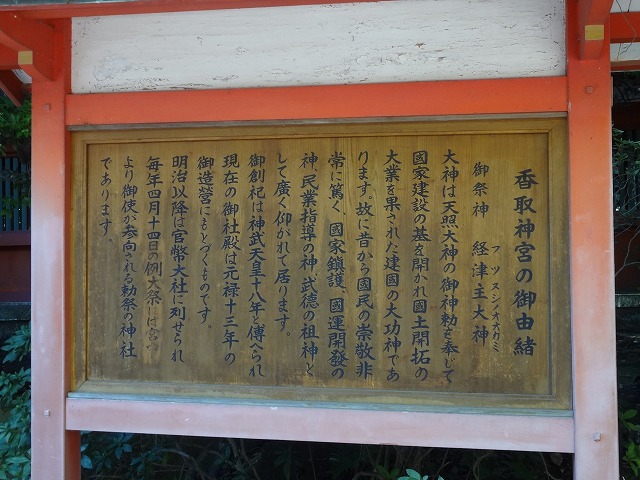 香取神宮の御由緒
御祭神 経津主大神
フツヌシノオオカミ
大神は天照大神の御神勅を奉して
國家建設の基を開かれ國土開拓の
大業を果された建国の大功神であ
ります。故に昔から國民の崇敬非
常に篤く、國家鎮護、國運開發の
神、民業指導の神、武徳の祖神と
して廣く仰がれて居ります。
御創祀は神武天皇十八年と傳へられ
現在の御社殿は元禄十三年の
御造營にもとづくものです。
明治以降は官幣大社に列せられ
毎年四月十四日の例大祭には宮中
より御使が参向される勅祭の神社
であります。